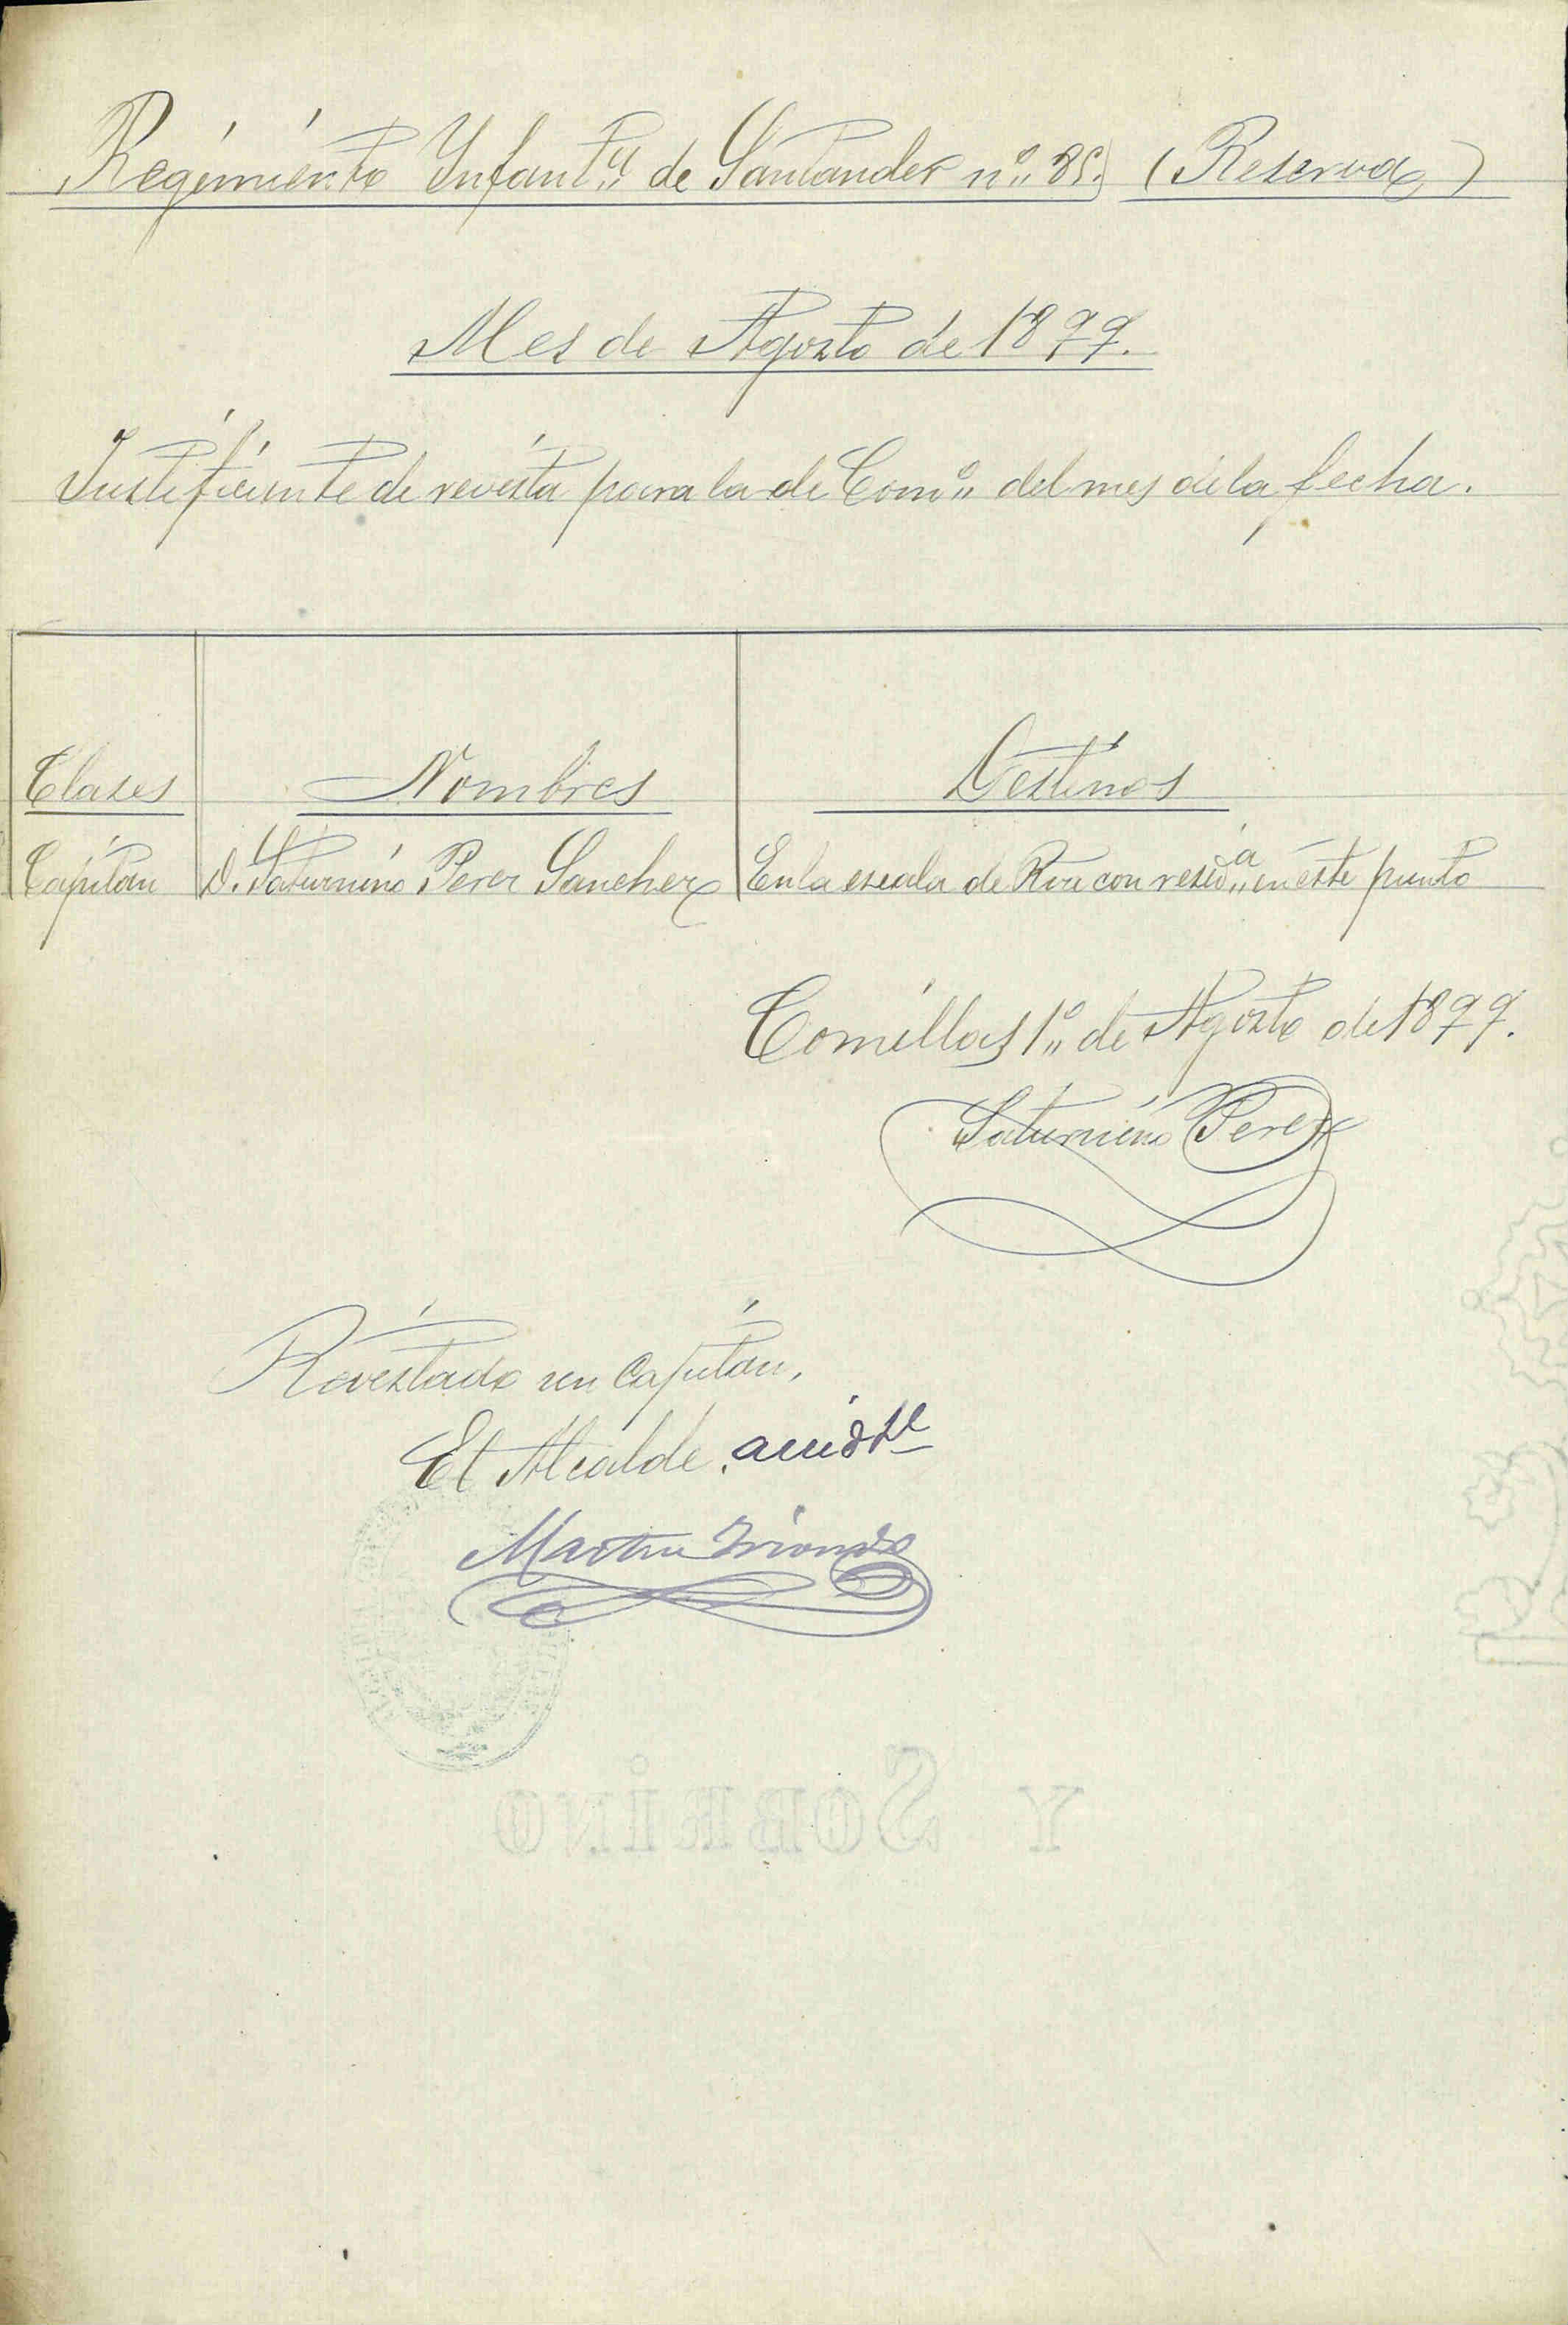 Regimiento Infant.ª de Santander nº 85. (Reserva)
Mes de Agosto de 1899.
Justificante de revista para la de Com.º del mes de la fecha.
Clases Nombres Destinos
Capitan D. Saturnino Perez Sanchez En la escala de Rva con resid.ª en este punto
Comillas 1º de Agosto de 1899.
Saturnino Perez
Revistado un Capitan,
El Alcalde, accidtl
Martin
Y SOBRINO